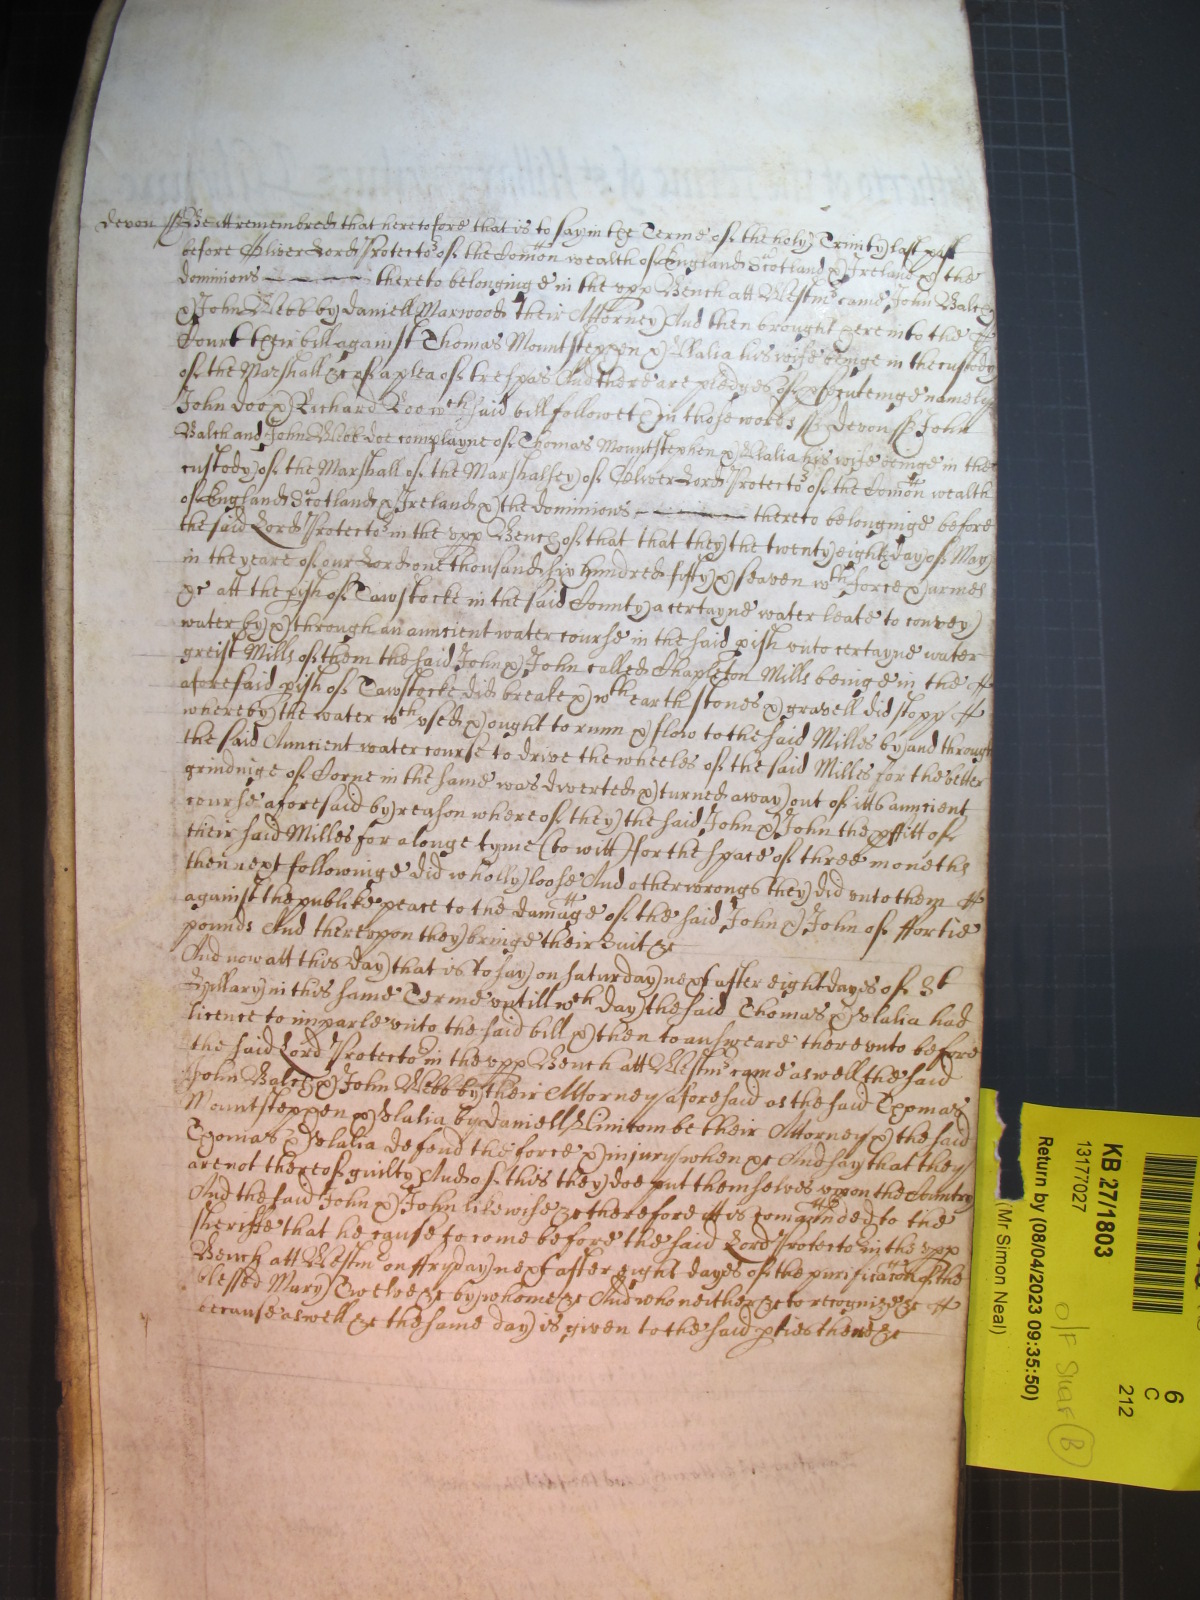 Devon ss Be itt remembred that heretofore that is to say in the Terme of the holy Trinity last past
before Oliver Lord Protector of the Comon wealth of England Scotland & Ireland & the
dominions thereto belonginge in the upp Bench att Westmr came John Balch
& John Webb by Daniell Marwood their Attorney And then brought here into the
Court their bill against Thomas Mountsteppen & Elalia his wife beinge in the custody
of the Marshall &c of a plea of trespas And there are pledges of prsecuteinge namely
John Doo & Richard Roo wch said bill followeth in those words ss Devon ss John
Balch and John Webb doe complayne of Thomas Mountstephen & Elalia his wife beinge in the
custody of the Marshall of the Marshalsey of Oliver Lord Protector of the Comon wealth
of England Scotland & Ireland & the dominions thereto belonginge before
the said Lord Protector in the upp Bench of that that they the twenty eighth day of May
in the yeare of our Lord one thousand six hundred fifty & seaven wth force & armes
&c att the pish of Tawstocke in the said County a certayne water leate to convey
water by & through an anncient water course in the said pish unto certayne water
greist Mills of them the said John & John called Chapleton Mills beinge in the
aforesaid pish of Tawstocke did breake & wth earth stones & gravell did stopp
whereby the water wch used & ought to runn & flow to the said Milles by and through
the said Anncient water course to drive the wheeles of the said Milles for the better
grindinge of Corne in the same was diverted & turned away out of itts anncient
course aforesaid by reason whereof they the said John & John the pffitt of
their said Milles for a longe tyme (to witt) for the space of three moneths
then next followinge did wholly loose And other wrongs they did unto them
against the publike peace to the damage of the said John & John of ffortie
pounds And thereupon they bringe their suit &c
And now att this day that is to say on Saturday next after eight dayes of St
Hillary in this same Terme untill wch day the said Thomas & Elalia had
licence to imparle unto the said bill & then to answeare there unto before
the said Lord Protector in the upp Bench att Westmr came aswell the said
John Balch & John Webb by their Attorney aforesaid as the said Thomas
Mountsteppen & Elalia by Daniell Slincombe their Attorney & the said
Thomas & Elalia defend the force & injury when &c And say that they
are not thereof guilty And of this they doe put themselves upon the Country
And the said John & John likewise &c therefore itt is comanded to the
sheriffe that he cause to come before the said Lord Protector in the upp
Bench att Westmr on ffryday next after eight dayes of the purificacon of the
blessed Mary Twelve &c by whome &c And who neither &c to recognize &c
because aswell &c the same day is given to the said pties there &c
KB 27/1803
13177027
Return by (08/04/2023 09:35:50)
(Mr Simon Neal)
6
C
212
O/F Shelf (B)